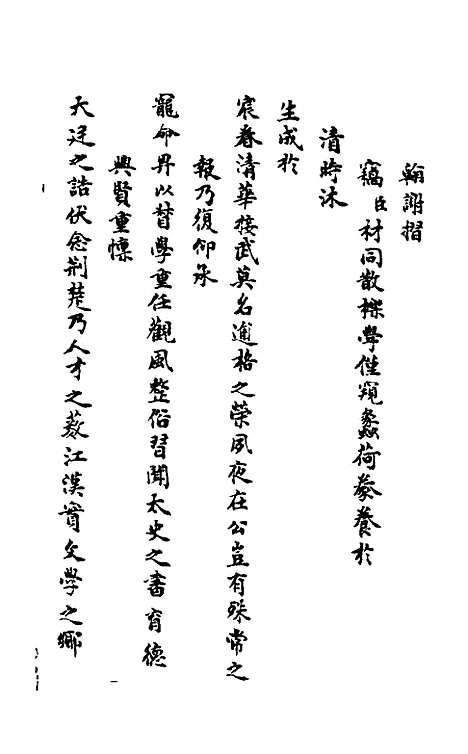 翰謝摺
竊臣材同散櫟學僅窺蠡荷豢養於
清時沐
生成於
宸眷清華接武莫名逾格之榮夙夜在公豈有殊常之
報乃復仰承
寵命畀以督學重任觀風整俗習聞太史之書育德
興賢重懍
天廷之誥伏念荆楚乃人才之藪江漢實文學之鄉